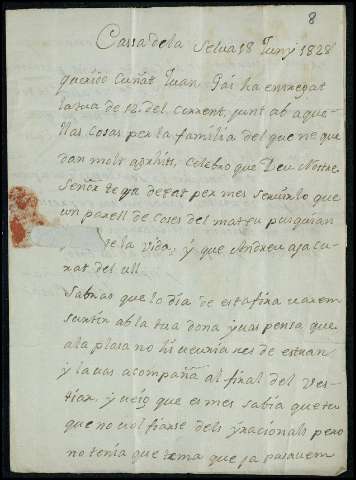 8
Cassa de la Selva 18 Juny 1828
querido Cuñat Juan Pai ha entregat
la tua de 12 del corrent, junt ab aque-
llas Cosas per la familia del que ne que
dan molt agrahits, Celebro que Deu Nostre
Señor te ga dexat per mes servirlo que
un parell de Coses del matex pusquian
la Vida, y que Andreu aja cu
rat del ull
Sabras que lo dia de esta fira varem
sentir ab la tua dona y vas pensa que
a la plasa no hi veuria res de estran
y la vas acompañá al final del Ves-
tiar, y veig que es mes sabia que tu
que no vol fiarse dels yracionals pero
no tenia que tema que ja pasavem